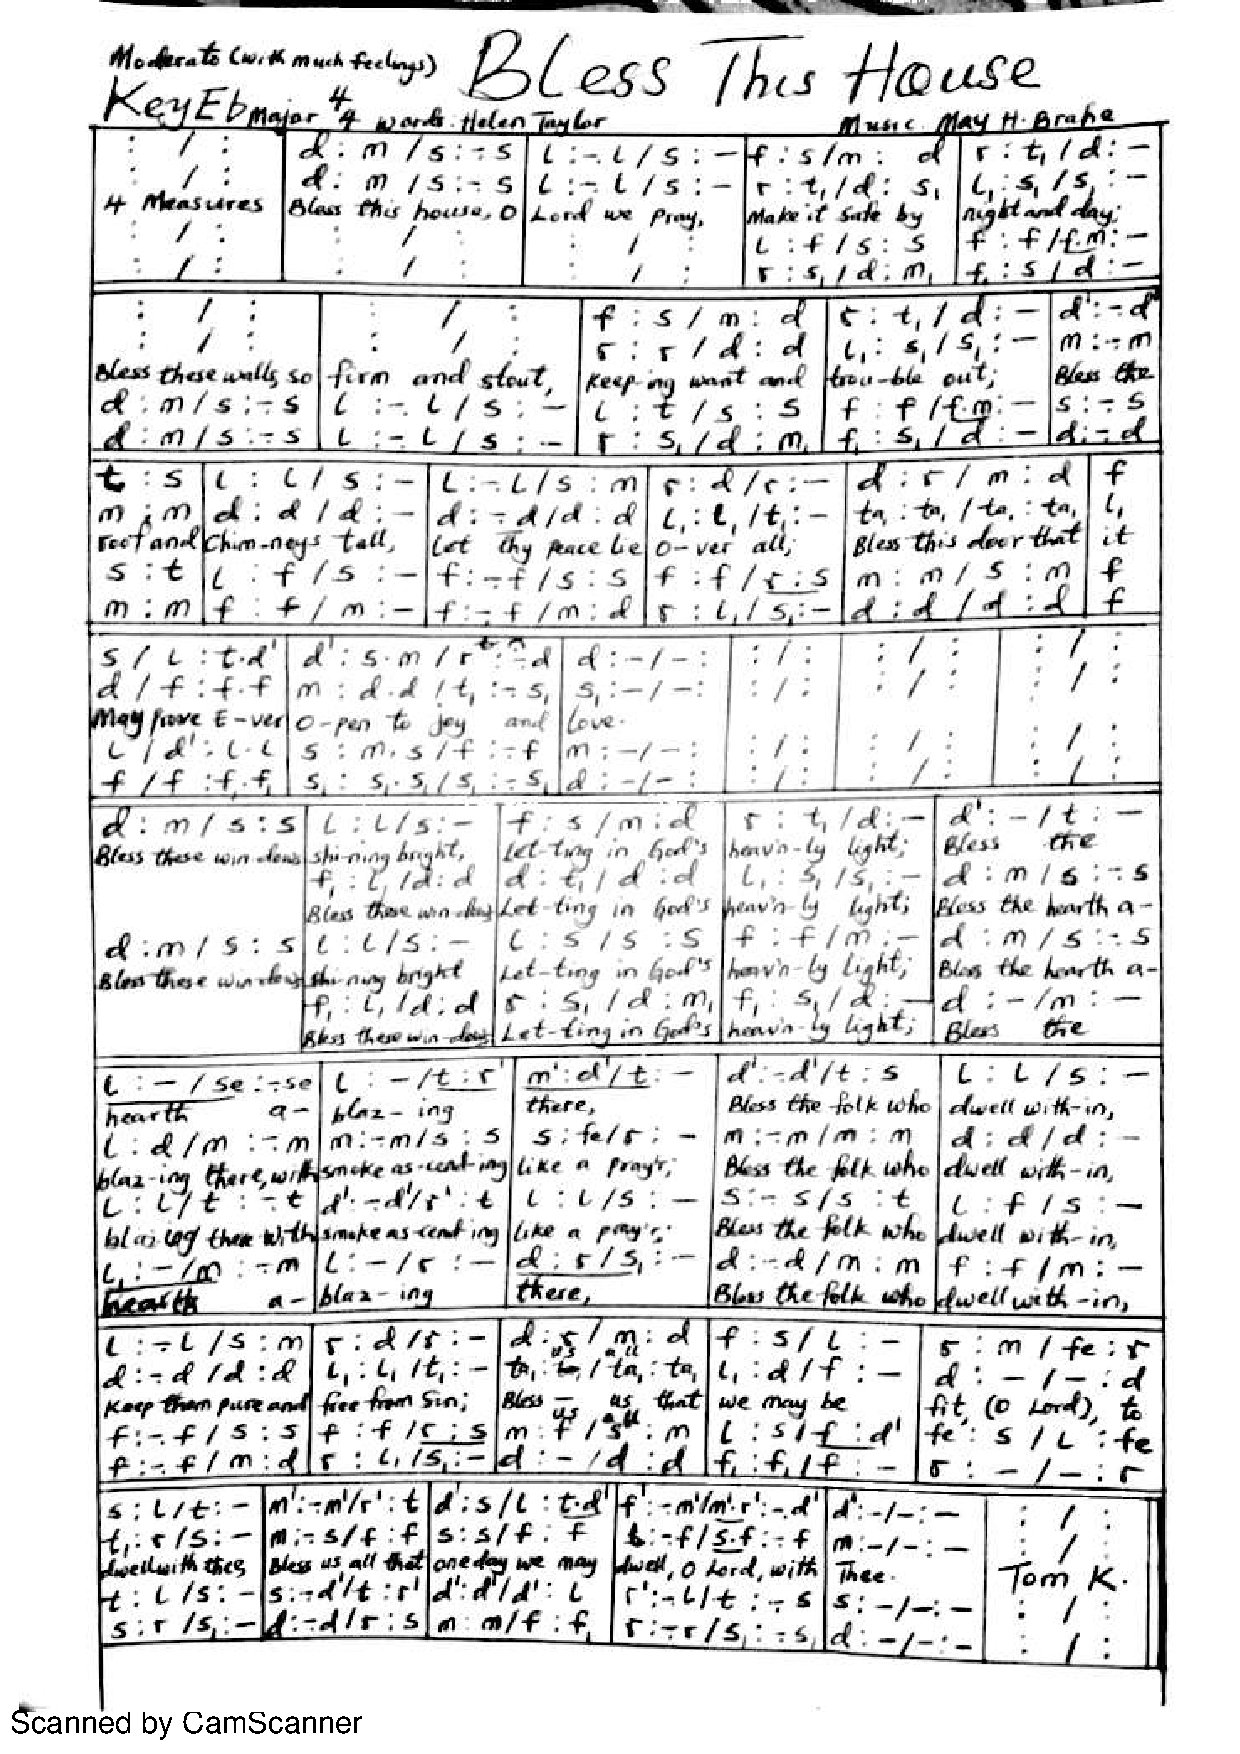 Moderato (with much feelings)
Bless This House
Key Eb Major 4/4 words. Helen Taylor
Music. May H. Brahe
: / : d : m / s : - s l : - l / s : - f : s / m : d r : t, / d : -
: / : d : m / s : - s l : - l / s : - r : t, / d : s, l, : s, / s, : -
4 Measures Bless this house, O Lord we pray, Make it safe by night and day;
: / : : / : : / : l : f / s : s f : f / f.m : -
: / : : / : : / : r : s, / d : m, f, : s / d : -
: / : : / : f : s / m : d r : t, / d : - d' : - d'
: / : : / : r : r / d : d l, : s, / s, : - m : - m
Bless these walls so firm and stout, Keep ing want and trou-ble out; Bless the
d : m / s : - s l : - l / s : - l : t / s : s f : f / f.m : - s : - s
d : m / s : - s l : - l / s : - r : s, / d : m, f, : s, / d : - d : - d
t : s l : l / s : - l : - l / s : m r : d / r : - d : r / m : d f
m : m d : d / d : - d : - d / d : d l, : l, / t, : - ta, : ta, / ta, : ta, l,
roof and Chim-neys tall, Let thy peace lie O-ver all; Bless this door that it
s : t l : f / s : - f : - f / s : s f : f / r : s m : m / s : m f
m : m f : f / m : - f : - f / m : d r : l, / s, : - d : d / d : d f
s / l : t.d' d' : s.m / r : - d d : - / - : : / : : / : : / :
d / f : f.f m : d.d / t, : - s, s, : - / - : : / : : / : : / :
May prove E-ver O-pen to joy and love.
l / d' : l.l s : m.s / f : - f m : - / - : : / : : / : : / :
f / f : f,.f, s, : s,.s, / s, : - s, d : - / - : : / : : / : : / :
d : m / s : s l : l / s : - f : s / m : d r : t, / d : - d' : - / t : -
Bless these win-dows shi-ning bright, Let-ting in God's heav'n-ly light; Bless the
f, : l, / d : d d : t, / d : d l, : s, / s, : - d : m / s : - s
Bless these win-dows Let-ting in God's heav'n-ly light; Bless the hearth a-
d : m / s : s l : l / s : - l : s / s : s f : f / m : - d : m / s : - s
Bless these win-dows shi-ning bright Let-ting in God's heav'n-ly light; Bless the hearth a-
f, : l, / d : d r : s, / d : m, f, : s, / d : - d : - / m : -
Bless these win-dows Let-ting in God's heav'n-ly light; Bless the
l : - / se : - se l : - / t : r' m' : d' / t : - d' : - d' / t : s l : l / s : -
hearth a- blaz-ing there, Bless the folk who dwell with-in,
l : d / m : - m m : - m / s : s s : fe / r : - m : - m / m : m d : d / d : -
blaz-ing there, with smoke as-cend-ing like a pray'r; Bless the folk who dwell with-in,
l : l / t : - t d' : - d' / r' : t l : l / s : - s : - s / s : t l : f / s : -
blazing there with smoke as-cend ing like a pray'r; Bless the folk who dwell with-in,
l, : - / m : - m l : - / r : - d : r / s, : - d : - d / m : m f : f / m : -
hearth a- blaz-ing there, Bless the folk who dwell with-in,
l : - l / s : m r : d / r : - d : r / m : d f : s / l : - r : m / fe : r
us all
d : - d / d : d l, : l, / t, : - ta, : ta, / ta, : ta, l, : d / f : - d : - / - : d
Keep them pure and free from Sin; Bless — us that we may be fit, (O Lord), to
us all
f : - f / s : s f : f / r : s m : f / s : m l : s / f : d' fe : s / l : fe
f : - f / m : d r : l, / s, : - d : - / d : d f, : f, / f : - r : - / - : r
s : l / t : - m' : - m' / r' : t d' : s / l : t.d' f' : - m' / m'.r' : - d' d' : - / - : -
t, : r / s : - m : - s / f : f s : s / f : f l : - f / s.f : - f m : - / - : -
dwell with thee, Bless us all that one day we may dwell, O Lord, with Thee.
Tom K.
t : l / s : - s : - d' / t : r' d' : d' / d' : l r' : - l / t : - s s : - / - : -
s : r / s, : - d : - d / r : s m : m / f : f, r : - r / s, : - s, d : - / - : -
Scanned by CamScanner